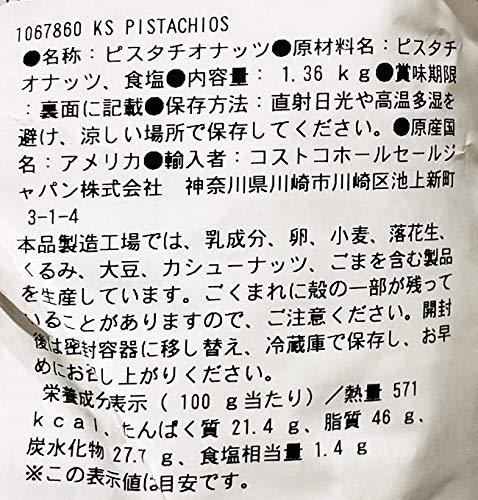 1067860 KS PISTACHIOS
●名称：ピスタチオナッツ●原材料名：ピスタ
チオナッツ、食塩●内容量：1.36 kg●賞味期限
：裏面に記載●保存方法：直射日光や高温多湿を
避け、涼しい場所で保存してください。●原産国
名：アメリカ●輸入者：コストコホールセールジ
ャパン株式会社　神奈川県川崎市川崎区池上新町
3-1-4
本品製造工場では、乳成分、卵、小麦、落花生、
くるみ、大豆、カシューナッツ、ごまを含む製品
を生産しています。ごくまれに殻の一部が残って
いることがありますので、ご注意ください。開封
後は密封容器に移し替え、冷蔵庫で保存し、お早
めにお召し上がりください。
栄養成分表示（100 g当たり）/熱量 571
kcal、たんぱく質 21.4 g、脂質 46 g、
炭水化物 27.7 g、食塩相当量 1.4 g
※この表示値は目安です。